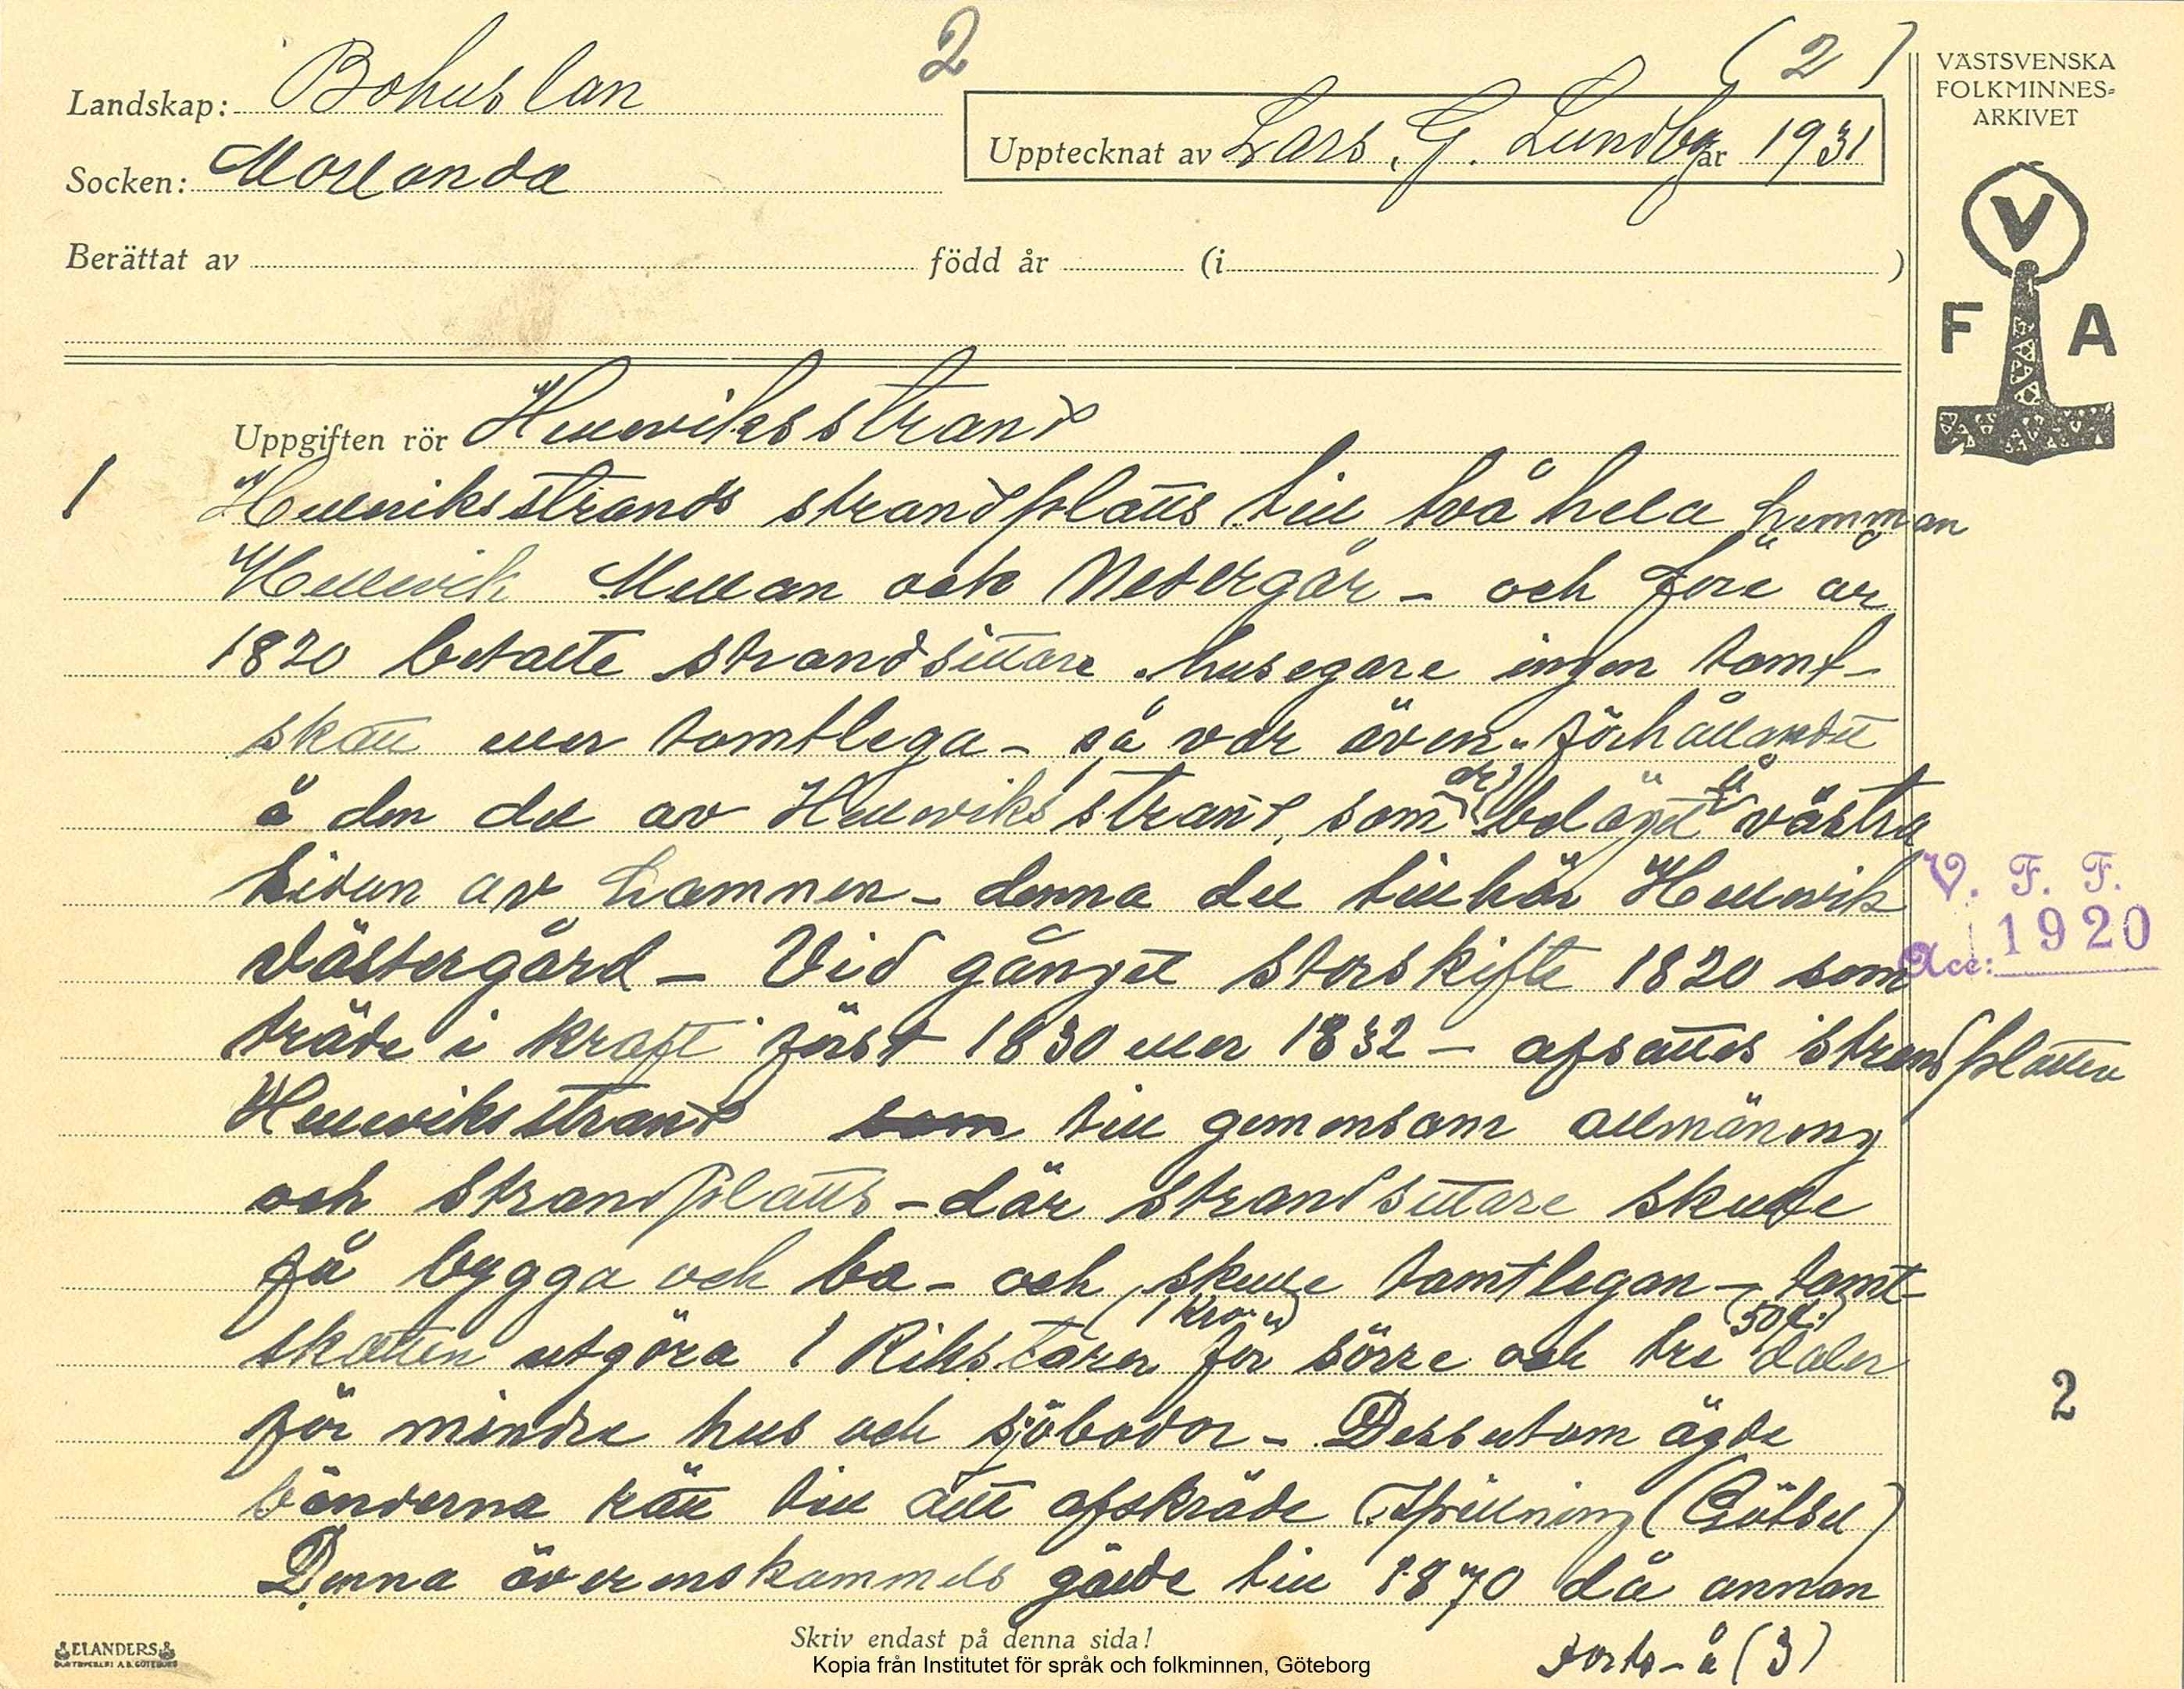 2
(2)
Landskap: Bohuslan
Socken: Morlanda
Upptecknat av Lars. G. Lundbg år 1931
Berättat av född år (i )
VÄSTSVENSKA
FOLKMINNES-
ARKIVET
V
F A
Uppgiften rör Hellewiksstrand
1 Helleviksstrands strandplatts till två hela hemman
Hellewik Mellan och Nedergår - och före år
1820 betalte strandsittare. husegare ingen tomt-
skatt eller tomtlega - så var även förhållandet
å den del av Hellewiksstrand, som är belägit å västra
sidan av hamnen - denna del tillhör Hellewik
Västergård - Vid gånget storskifte 1820 som
träde i kraft först 1830 eller 1832 - afsattes strandplatten
Hellewiksstrand som till gemensam allmäning
och strandplatts - där strandsittare skulle
få bygga och bo - och skulle tomtlegan - tomt-
skatten utgöra 1 Riksdaler (1 kro) för större och tre (50 ö.) daler
för mindre hus och sjöbodor - Dessutom ägde
bönderna rätt till att afskräde Spillning (Götsel)
Denna överenskommels gälde till 1870 då annan
Forts - å (3)
V. F. F.
Acc: 1920
2
ELANDERS
Skriv endast på denna sida!
Kopia från Institutet för språk och folkminnen, Göteborg